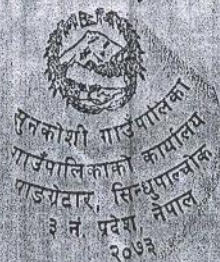 सुनकोशी गाउँपालिका
गाउँपालिकाको कार्यालय
पाङग्रेटार, सिन्धुपाल्चोक
३ नं. प्रदेश, नेपाल
२०७३